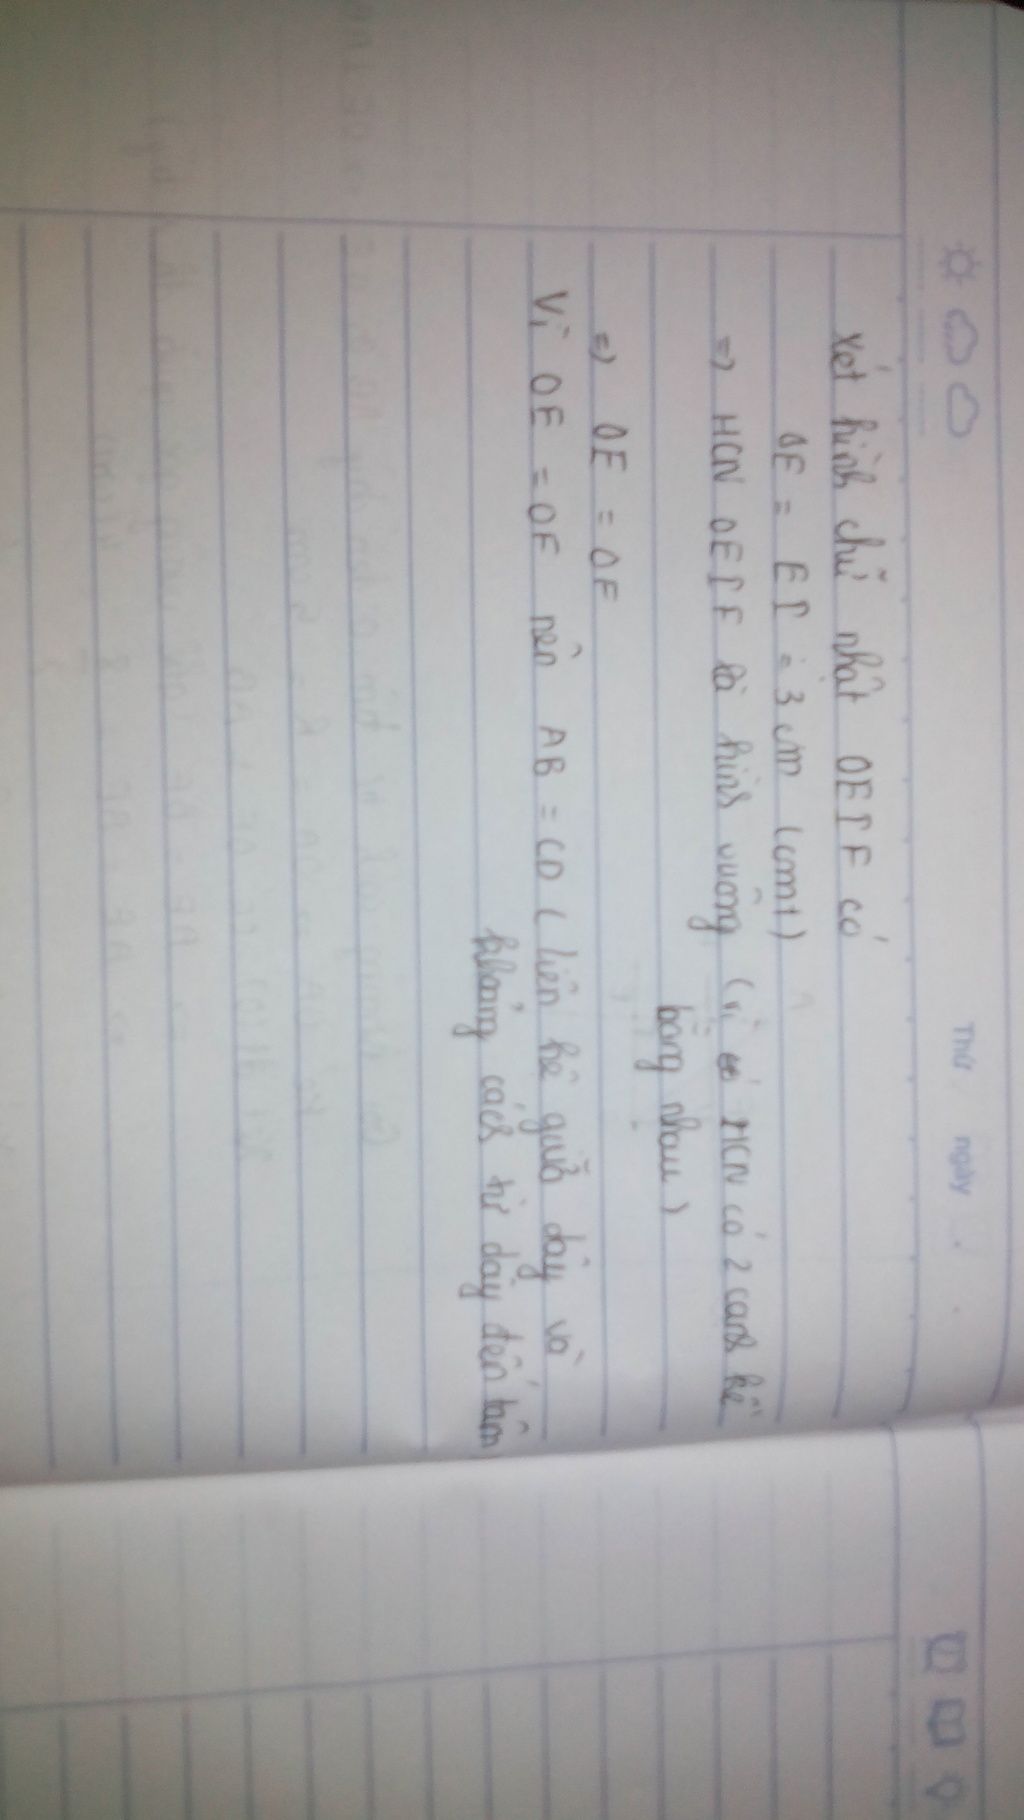 Thứ ngày
Xét hình chữ nhật OEIF có
OE = EI = 3 cm (cmt)
=) HCN OEIF là hình vuông (vì HCN có 2 cạnh kề
bằng nhau)
=) OE = OF
Vì OE = OF nên AB = CD ( liên hệ giữa dây và
khoảng cách từ dây đến tâm)